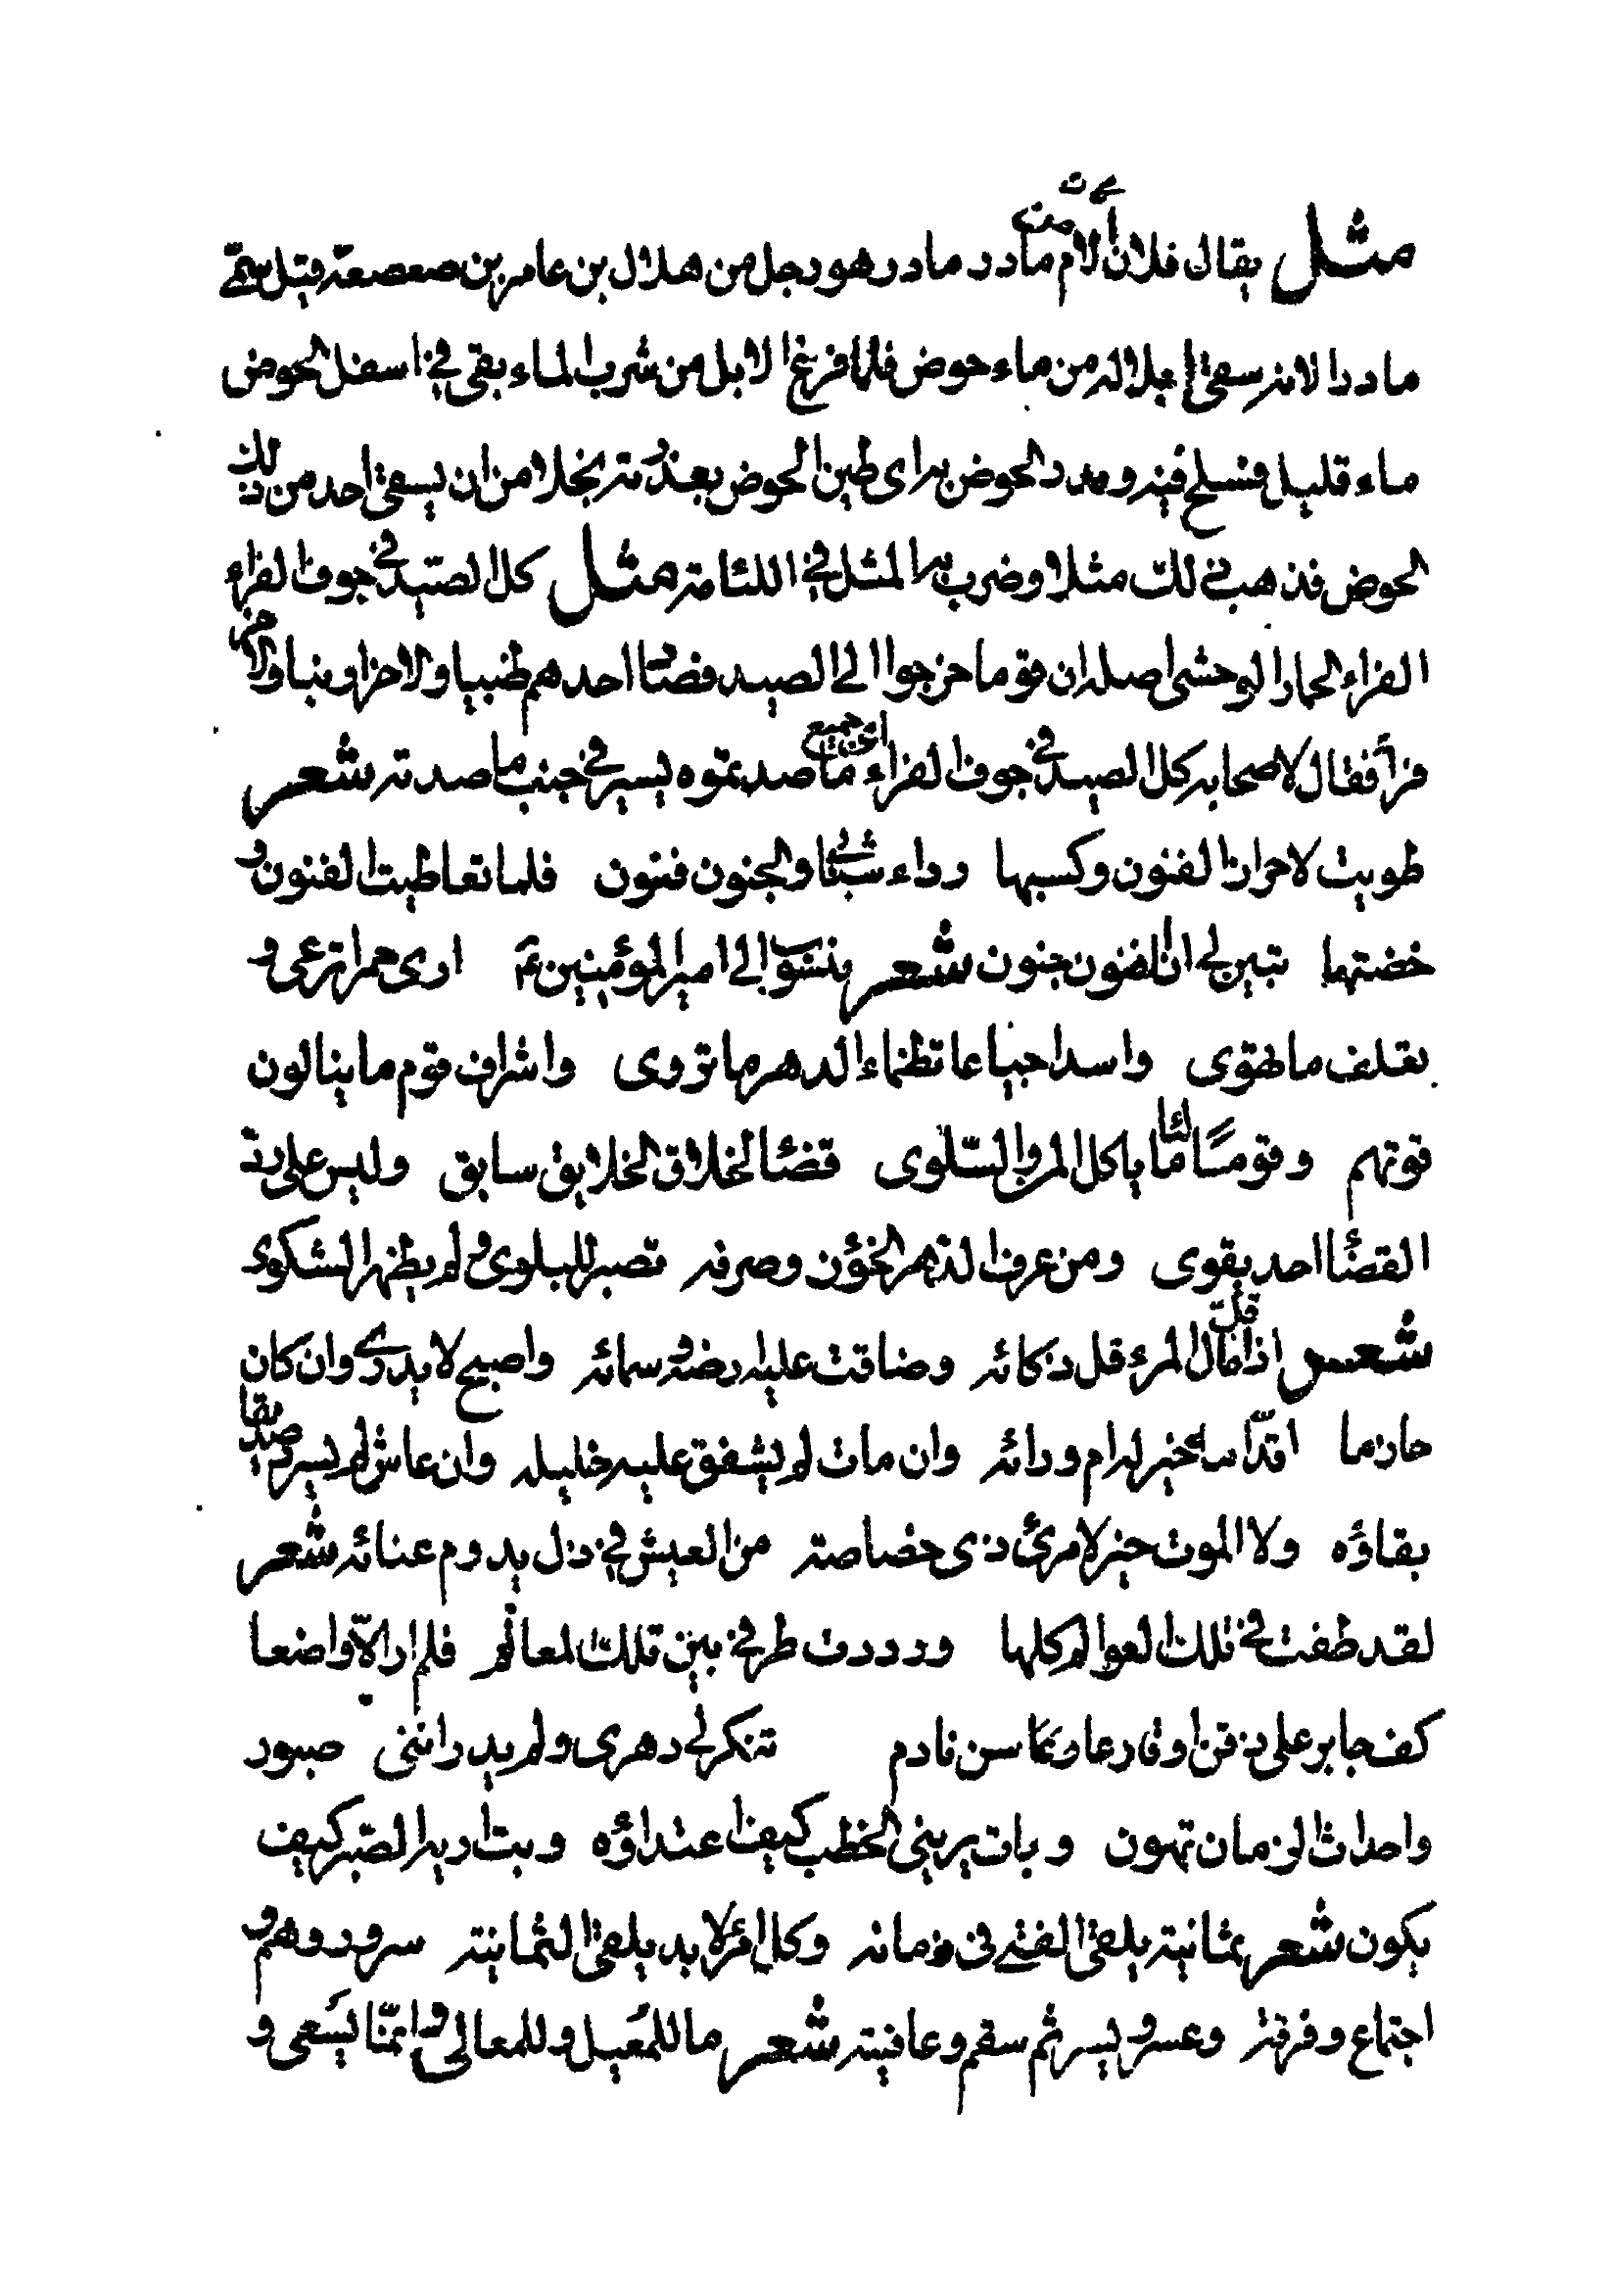 مثل يقال فلان ألام من مادر مادر هو رجل من هلال بن عامر بن صعصعة قيل سمّى
مادرا لانه سقى ابلا له من ماء حوض فلما فرغ الابل من شرب الماء بقى فى اسفل الحوض
ماء قليل فسلح فيه ومدد الحوض به اى طين الحوض بعذرته بخلا من ان يسقى احد من ذلك
الحوض فذهب ذلك مثلا وضرب به المثل فى اللئامة مثل كل الصيد فى جوف الفراء
الفراء الحمار الوحشى اصله ان قوما خرجوا الى الصيد فصاد احدهم ظبيا والاخر اونبا والاخر
فرأ فقال لاصحابه كل الصيد فى جوف الفراء اى جميع ما صدتموه يسير فى جنب ما صدته شعر
طويت لاحراز الفنون وكسبها رداء شبابى والجنون فنون فلما تعاطيت الفنون و
خضتها تبين لى ان الفنون جنون شعر ينسب الى امير المؤمنين ارى حمرا ترعى و
تعلف ما تهوى واسدا جياعا تظماء الدهر ما تروى واشراف قوم ما ينالون
قوتهم وقوما لئاما ياكل المن والسّلوى قضاء لخلاق الخلايق سابق وليس على ردّ
القضاء احد يقوى ومن عرف الدهر الخؤن وصرفه تصبر للبلوى ولم يظهر الشكوى
شعر اذا قل مال المرء قل ذكائه وضاقت عليه ارضه وسمائه واصبح لا يدرى وان كان
حازما اقدّامه خير له ام ورائه وان مات لم يشفق عليه خليله وان عاش لم يسر صديقا
بقاؤه ولا الموت خير لامرئ ذى خصاصة من العيش فى ذل يدوم عنائه شعر
لقد طفت فى تلك العوالم كلها ورددت طرفى بين تلك المعالم فلم ار الاّ واضعا
كف حاير على ذقن او قارعا سن نادم تنكر لى دهرى ولم يدر اننى صبور
واحداث الزمان تهون وبات يرينى الخطب كيف اعتداؤه وبت اريه الصبر كيف
يكون شعر ثمانية يلقى الفتى فى زمانه وكل امرئ لا بد يلقى الثمانية سرور وهم و
اجتماع وفرقة وعسر ويسر ثم سقم وعافية شعر ما للمعيل وللمعالى وانمّا يسعى و